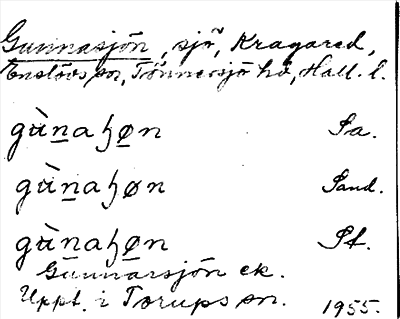 Gunnasjön, sjö, Kragared,
Enslövs sn, Tönnersjö hd, Hall. l.
gùn̲aɧø̲n Sa.
gùn̲aɧøn Sand.
gùn̲aɧø̲n St.
Gunnarsjön ek.
Uppt. i Torups sn. 1955.